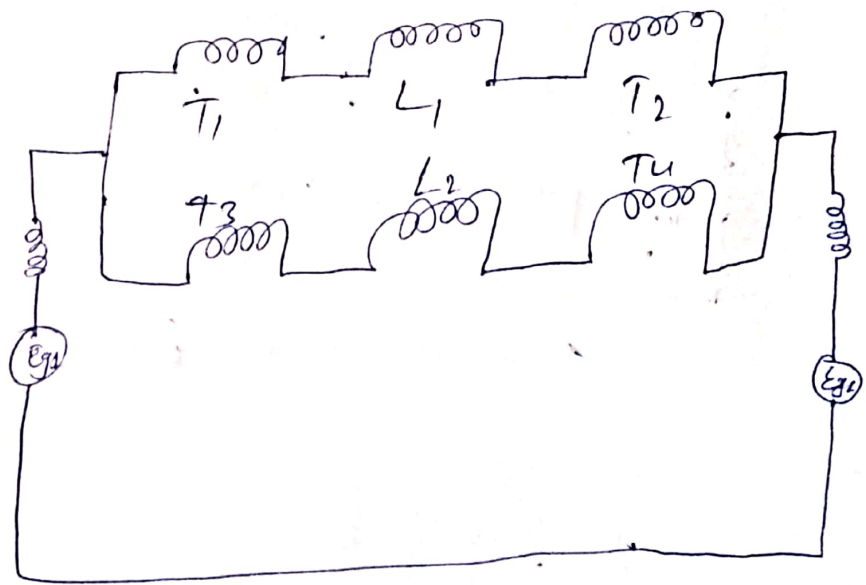 T1 L1 T2
T3 L2 T4
Eg1 Eg2